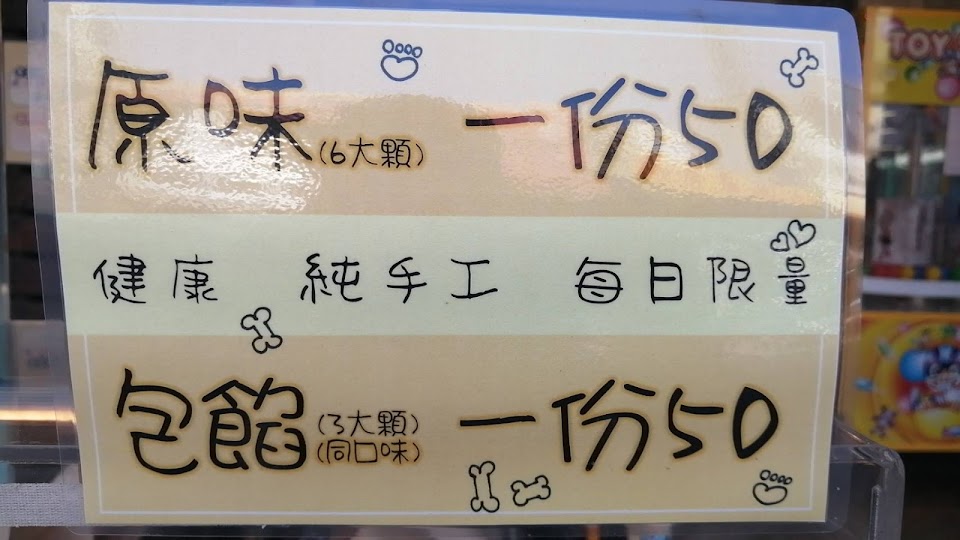 原味(6大顆) 一份50
健康 純手工 每日限量
包餡(3大顆)(同口味) 一份50
TOY